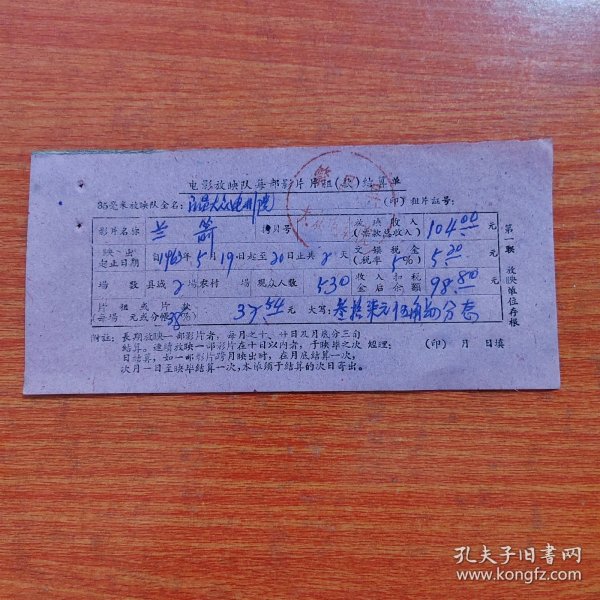 电影放映队每部影片片租(款)结算单
35毫米放映队全名: 大众电影院 (印) 租片証号:
影片名称 兰箭 拷贝号 放映收入(票款总收入) 104.00 元
映出起止日期 自1963年5月19日起至20日止共2天 文娱税金(税率5%) 5.20 元
场数 县城2场农村 场 观众人数 530 收入扣税金后余额 98.80 元
片租或片款(每场 元或分帐38%) 37.54 元 大写: 叁拾柒元伍角肆分
附註: 長期放映一部影片者,每月之十、廿日及月底分三旬
結算。連續放映一部影片在十日以內者,于映毕之次 經理: (印) 月 日填
日結算,如一部影片跨月映出时,在月底結算一次,
次月一日至映毕結算一次,本依须于結算的次日寄出。
第一联 放映单位存根
孔夫子旧书网
www.kongfz.com